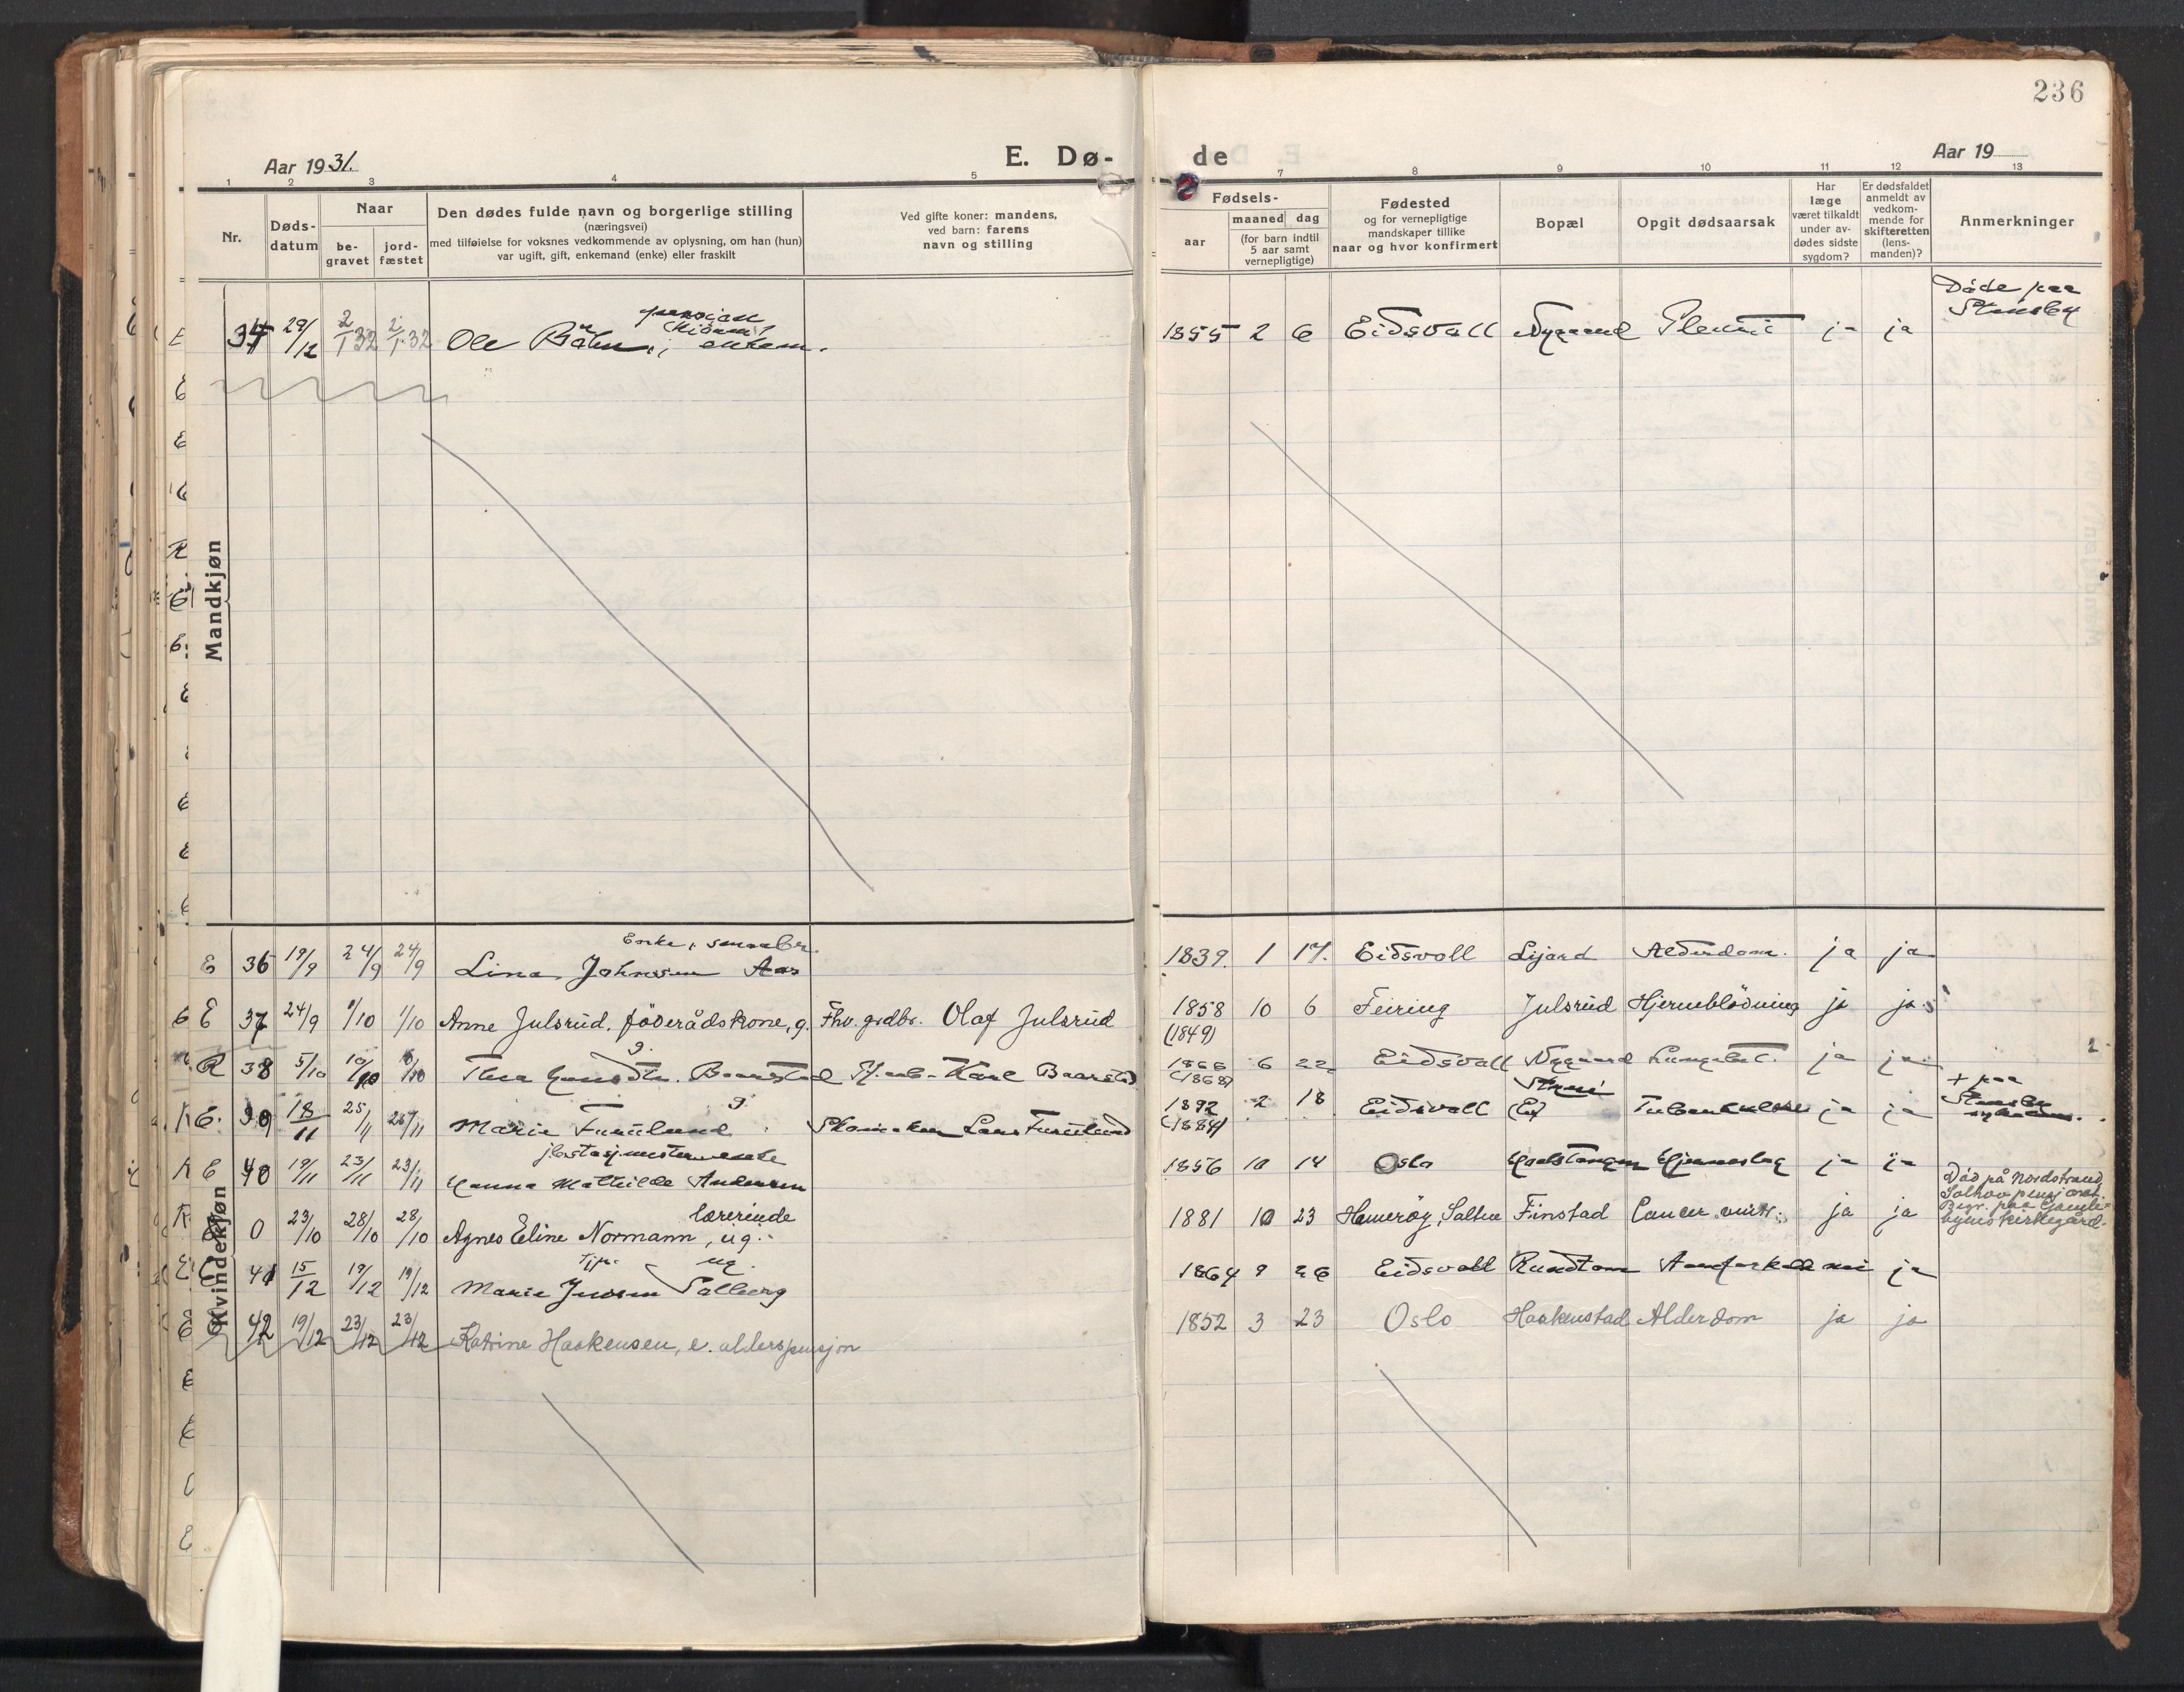 236
Aar 1931.
E. Dø-
de
Aar 19
1 2 3 4 5 7 8 9 10 11 12 13
Nr.
Døds-
datum
Naar
be-
gravet
jord-
fæstet
Den dødes fulde navn og borgerlige stilling
(næringsvei)
med tilføielse for voksnes vedkommende av oplysning, om han (hun)
var ugift, gift, enkemand (enke) eller fraskilt
Ved gifte koner: mandens,
ved barn: farens
navn og stilling
Fødsels-
aar
maaned dag
(for barn indtil
5 aar samt
vernepligtige)
Fødested
og for vernepligtige
mandskaper tillike
naar og hvor konfirmert
Bopæl
Opgit dødsaarsak
Har
læge
været tilkaldt
under av-
dødes sidste
sygdom?
Er dødsfaldet
anmeldt av
vedkom-
mende for
skifteretten
(lens-
manden)?
Anmerkninger
Mandkjøn
34 29/12 2/1 32 2/1 32 Ole enkem. 1855 2 6 Eidsvoll Nygaard ja ja Døde paa Stensby
Kvindekjøn
Enke,
E 36 19/9 24/9 24/9 Lina Johnsen Aas 1839. 1 17. Eidsvoll Alderdom. ja ja
E 37 24/9 1/10 1/10 Anne Julsrud, föderådskone, g. Fhv. grdbr. Olaf Julsrud 1858 10 6 Feiring Julsrud Hjerneblödning ja ja
(1849)
R 38 5/10 10/10 10/10 Thea Baarstad Karl Baarstad 1866 6 22 Eidsvoll Nygaard ja ja
(1868)
g.
K E. 39 18/11 25/11 25/11 Marie Furulund Lars Furulund 1892 2 18 Eidsvoll Tuberkulose ja ja + paa Stensby
(1884)
K E 40 19/11 23/11 23/11 Hanna Mathilde Andersen 1856 10 14 Oslo ja ja
lærerinde
0 23/10 28/10 28/10 Agnes Eline Normann, ug. 1881 10 23 Hamerøy, Salten Finstad Cancer ja ja
Död på Nordstrand,
Solhov pensjonat.
Begr. paa Gamle-
byens kirkegård.
ug.
41 15/12 19/12 19/12 Marie Jensen Solberg 1864 9 26 Eidsvoll Rundtom nei ja
E 42 19/12 23/12 23/12 Katrine Haakensen, e. alderspensjon 1852 3 23 Oslo Haakenstad Alderdom ja ja